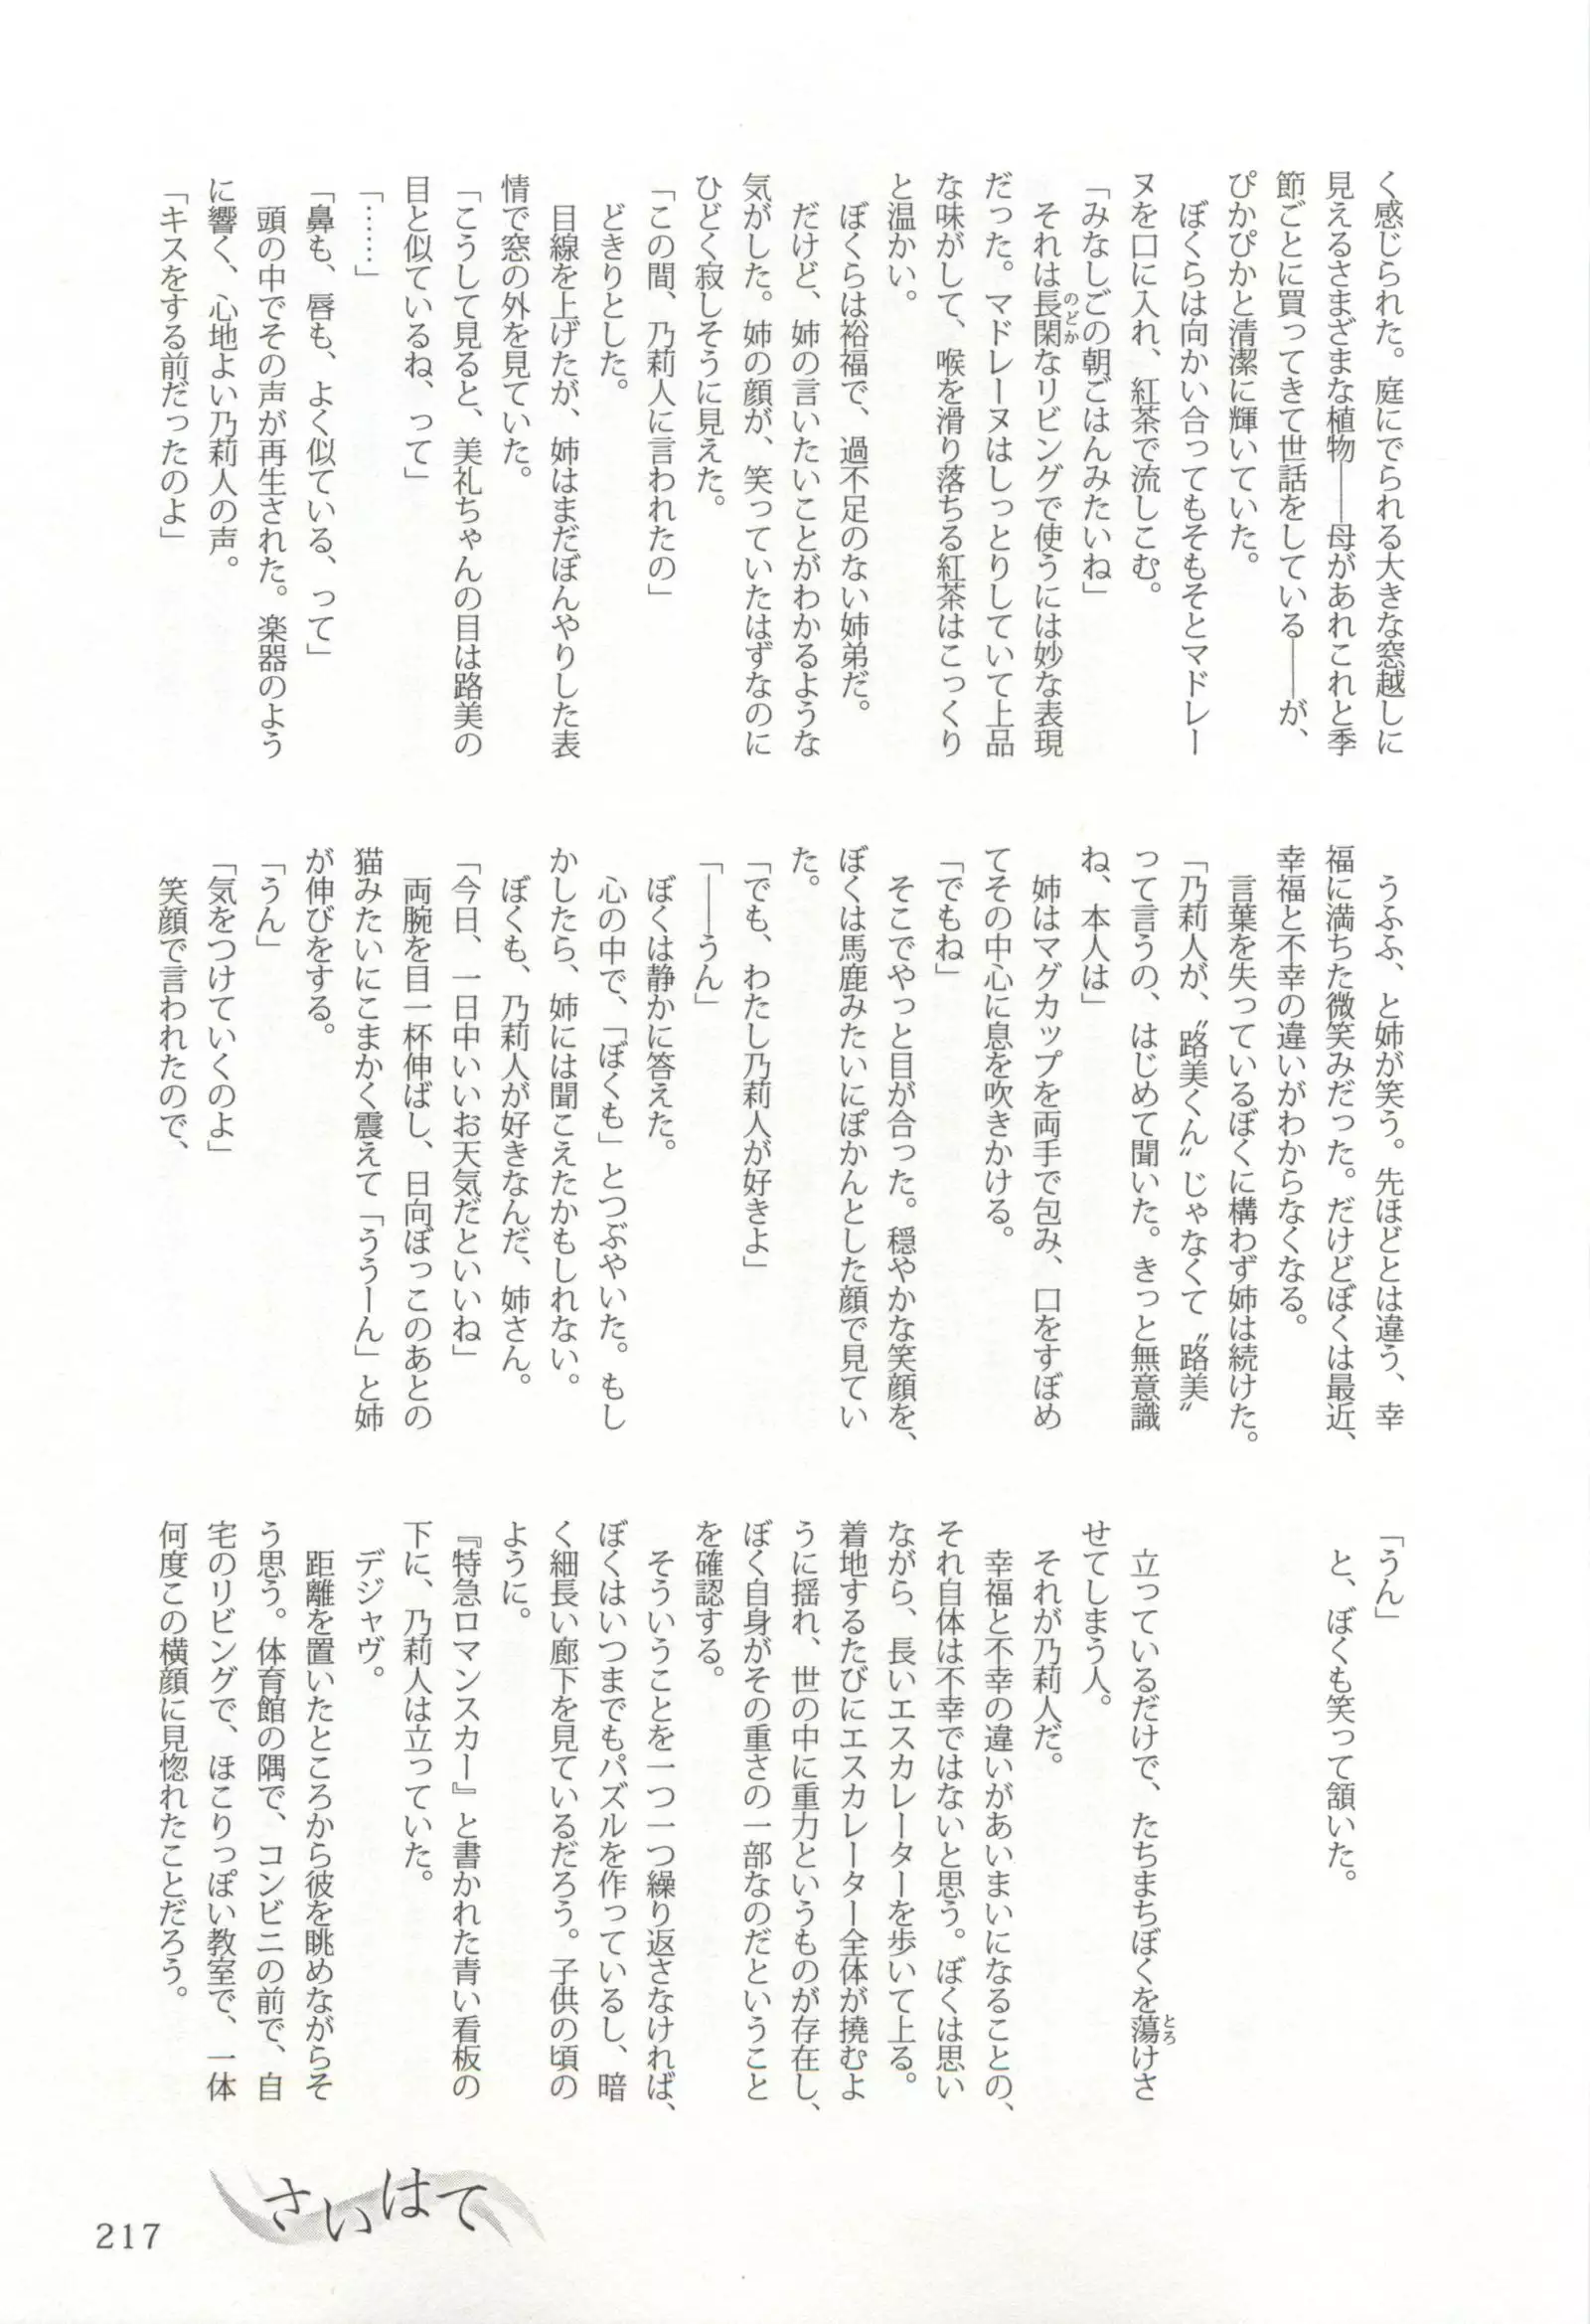 く感じられた。庭にでられる大きな窓越しに
見えるさまざまな植物――母があれこれと季
節ごとに買ってきて世話をしている――が、
ぴかぴかと清潔に輝いていた。
ぼくらは向かい合ってもそもそとマドレー
ヌを口に入れ、紅茶で流しこむ。
「みなしごの朝ごはんみたいね」
それは長閑なリビングで使うには妙な表現
のどか
だった。マドレーヌはしっとりしていて上品
な味がして、喉を滑り落ちる紅茶はこっくり
と温かい。
ぼくらは裕福で、過不足のない姉弟だ。
だけど、姉の言いたいことがわかるような
気がした。姉の顔が、笑っていたはずなのに
ひどく寂しそうに見えた。
「この間、乃莉人に言われたの」
どきりとした。
目線を上げたが、姉はまだぼんやりした表
情で窓の外を見ていた。
「こうして見ると、美礼ちゃんの目は路美の
目と似ているね、って」
「……」
「鼻も、唇も、よく似ている、って」
頭の中でその声が再生された。楽器のよう
に響く、心地よい乃莉人の声。
「キスをする前だったのよ」
うふふ、と姉が笑う。先ほどとは違う、幸
福に満ちた微笑みだった。だけどぼくは最近、
幸福と不幸の違いがわからなくなる。
言葉を失っているぼくに構わず姉は続けた。
「乃莉人が、〝路美くん〟じゃなくて〝路美〟
って言うの、はじめて聞いた。きっと無意識
ね、本人は」
姉はマグカップを両手で包み、口をすぼめ
てその中心に息を吹きかける。
「でもね」
そこでやっと目が合った。穏やかな笑顔を、
ぼくは馬鹿みたいにぽかんとした顔で見てい
た。
「でも、わたし乃莉人が好きよ」
「――うん」
ぼくは静かに答えた。
心の中で、「ぼくも」とつぶやいた。もし
かしたら、姉には聞こえたかもしれない。
ぼくも、乃莉人が好きなんだ、姉さん。
「今日、一日中いいお天気だといいね」
両腕を目一杯伸ばし、日向ぼっこのあとの
猫みたいにこまかく震えて「ううーん」と姉
が伸びをする。
「うん」
「気をつけていくのよ」
笑顔で言われたので、
「うん」
と、ぼくも笑って頷いた。
立っているだけで、たちまちぼくを蕩けさ
とろ
せてしまう人。
それが乃莉人だ。
幸福と不幸の違いがあいまいになることの、
それ自体は不幸ではないと思う。ぼくは思い
ながら、長いエスカレーターを歩いて上る。
着地するたびにエスカレーター全体が撓むよ
うに揺れ、世の中に重力というものが存在し、
ぼく自身がその重さの一部なのだということ
を確認する。
そういうことを一つ一つ繰り返さなければ、
ぼくはいつまでもパズルを作っているし、暗
く細長い廊下を見ているだろう。子供の頃の
ように。
『特急ロマンスカー』と書かれた青い看板の
下に、乃莉人は立っていた。
デジャヴ。
距離を置いたところから彼を眺めながらそ
う思う。体育館の隅で、コンビニの前で、自
宅のリビングで、ほこりっぽい教室で、一体
何度この横顔に見惚れたことだろう。
さいはて
217